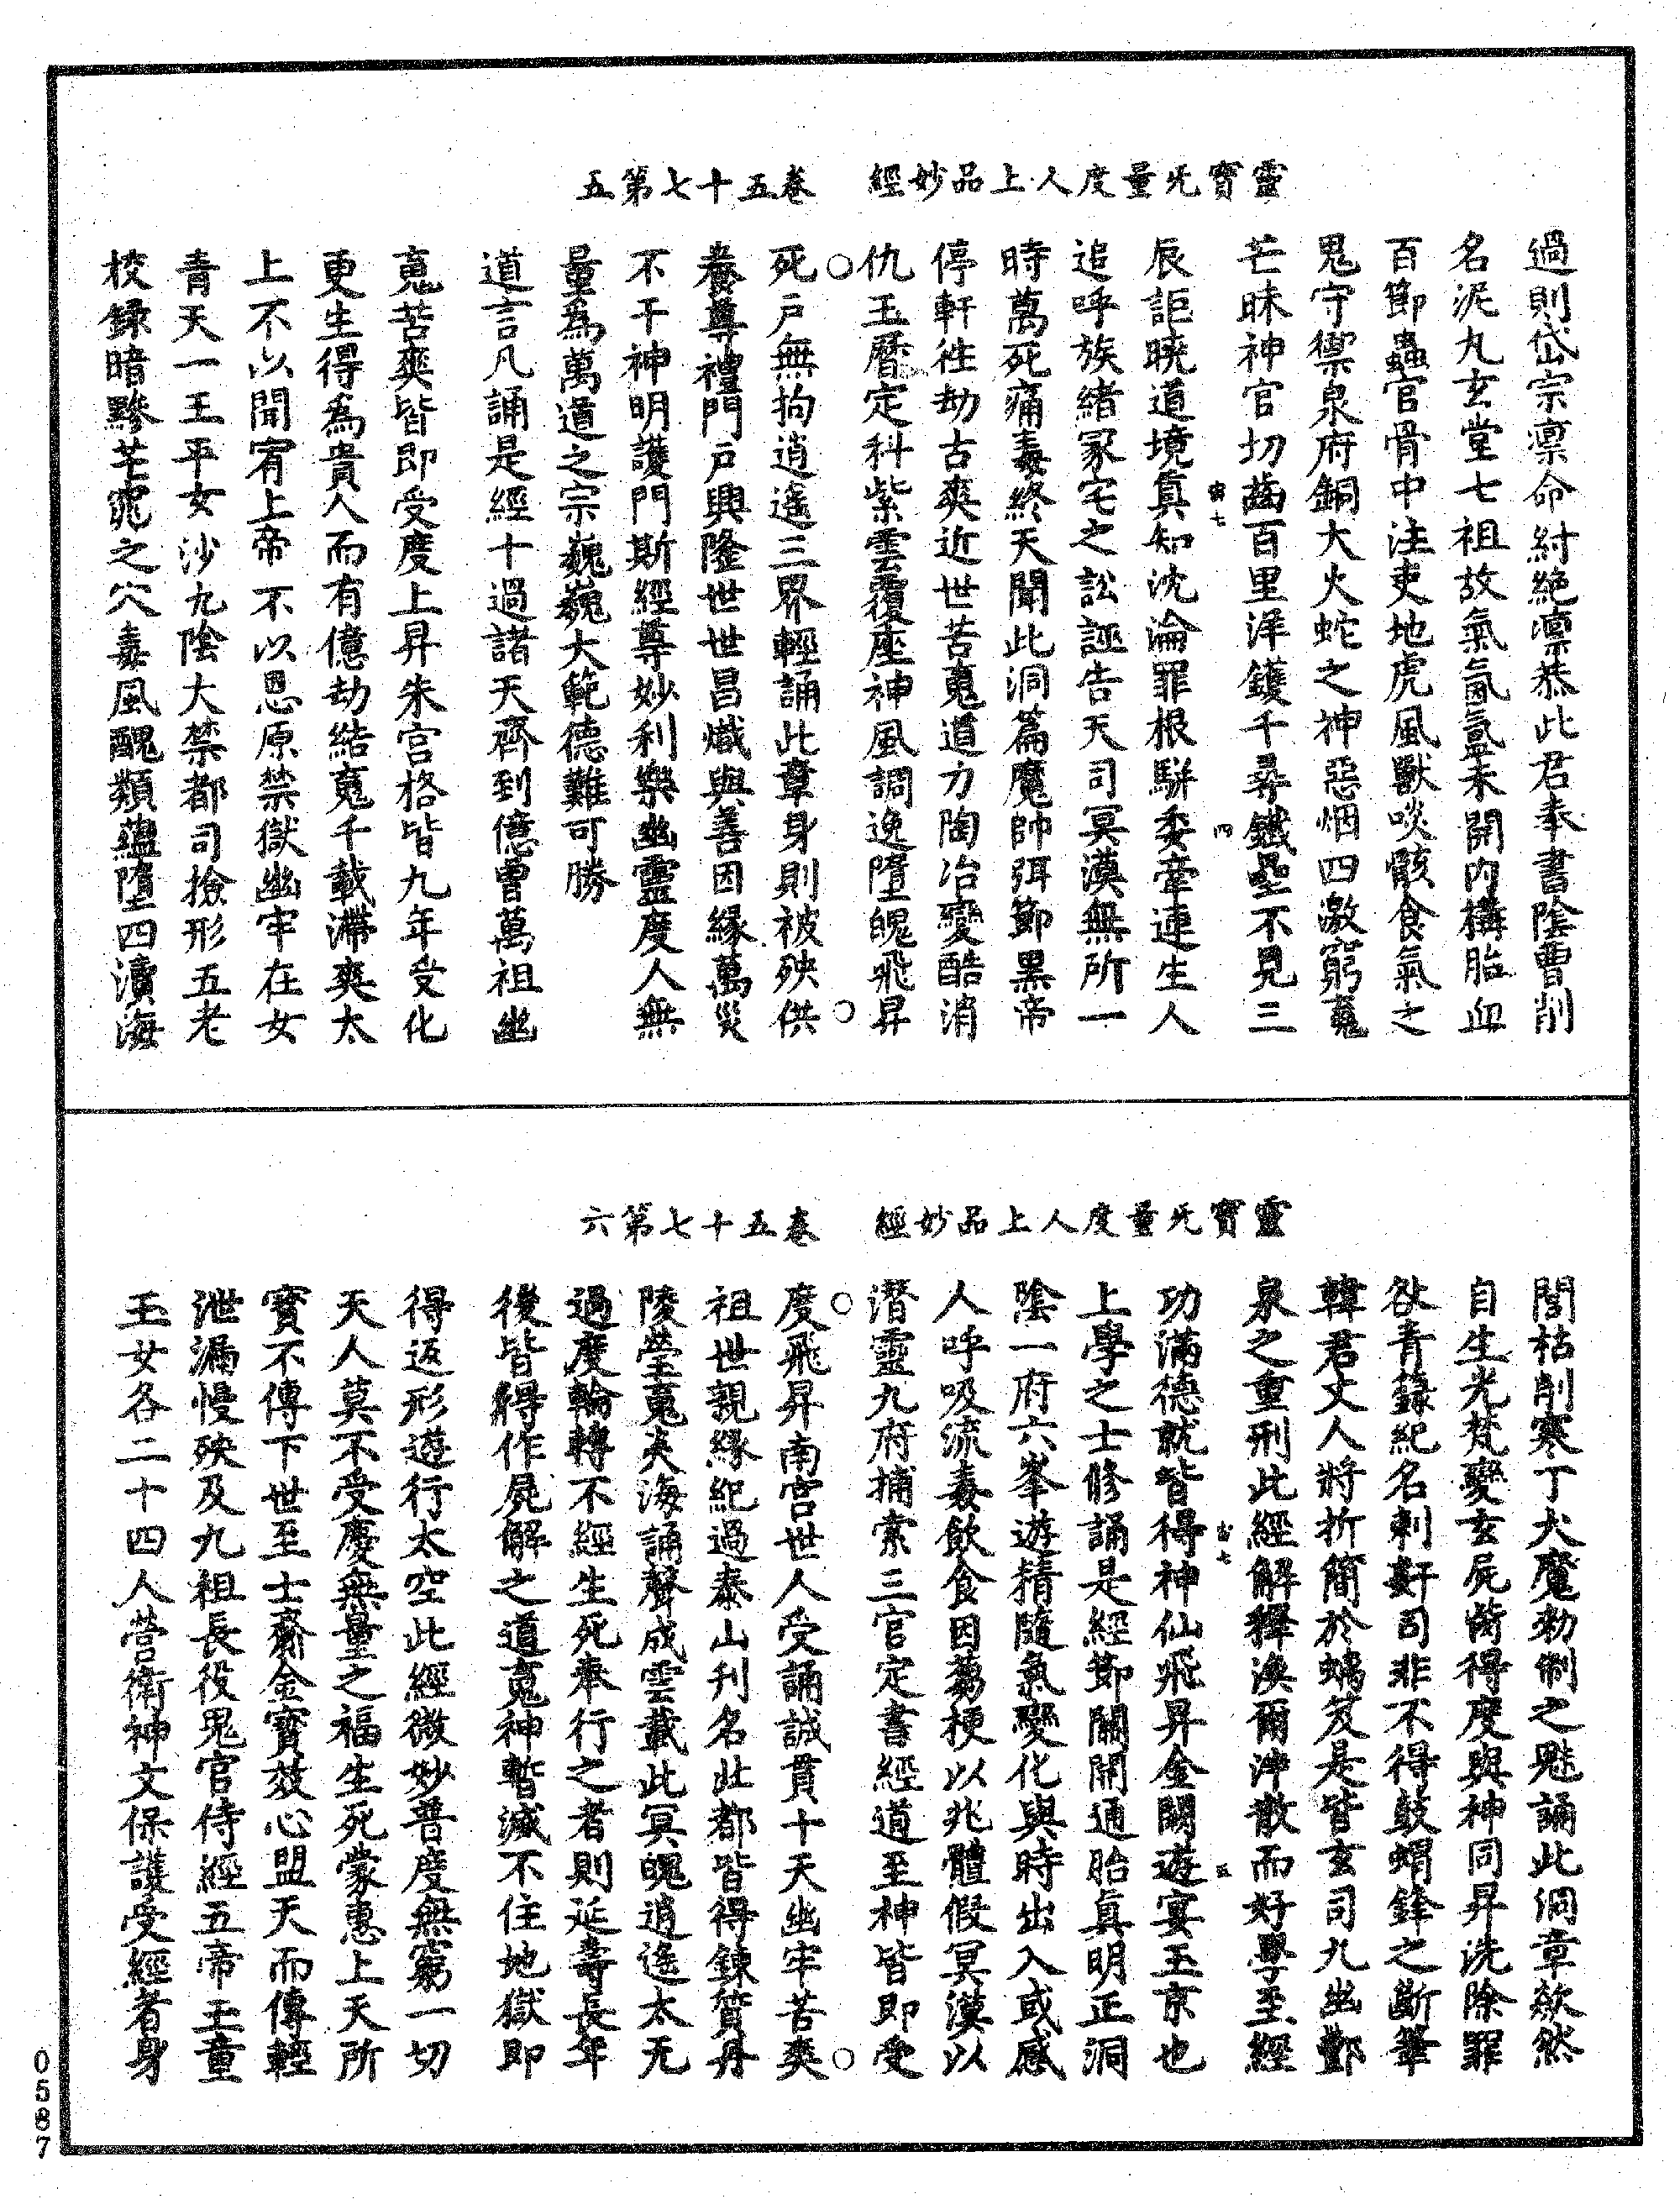 靈寶无量度人上品妙經　卷五十七第五
過則岱宗稟命紂絕凜恭此君奉書陰曹削
名泥丸玄堂七祖故氣氤氳未開內構胎血
百節蟲官骨中注吏地虎風獸啖骸食氣之
鬼守禦泉府銅大火蛇之神惡烟四激窮䰟
芒昧神官切齒百里洋鑊千尋鐵壘不見三
辰詎曉道境真知沈淪罪根駢委牽連生人
宙七　四
追呼族緒冢宅之訟誣告天司冥漠無所一
時萬死痛毒終天聞此洞篇魔帥弭節黑帝
停軒往劫古爽近世苦䰟道力陶冶變酷消
仇玉曆定科紫雲覆座神風調逸墮魄飛昇
○　○
死戶無拘逍遙三界輕誦此章身則被殃供
養尊禮門戶興隆世世昌熾與善因緣萬災
不干神明護門斯經尊妙利樂幽靈度人無
量為萬道之宗巍巍大範德難可勝
道言凡誦是經十過諸天齊到億曾萬祖幽
䰟苦爽皆即受度上昇朱宮格皆九年受化
更生得為貴人而有億劫結䰟千載滯爽太
上不以聞宥上帝不以恩原禁獄幽牢在女
青天一王平女沙九陰大禁都司撿形五老
校錄暗黲芒　之穴毒風醜類蘊墮四瀆海
靈寶无量度人上品妙經　卷五十七第六
間枯削寒丁犬魔勑制之魁誦此洞章欻然
自生光梵變玄屍齒得度與神同昇洗除罪
欲青籙紀名刺姧司非不得鼓蝟鋒之斷筆
韓君丈人將折簡於蝺笈是皆玄司九幽酆
泉之重刑此經解釋渙爾沖散而好學至經
宙七　五
功滿德就皆得神仙飛昇金闕遊宴玉京也
上學之士修誦是經節關開通胎真明正洞
陰一府六峯遊精隨氣變化與時出入或感
人呼吸流毒飲食因芻梗以兆體假冥漠以
潛靈九府捕索三官定書經道至神皆即受
○　○
度飛昇南宮世人受誦誠貫十天幽牢苦爽
祖世親緣紀過泰山刊名北都皆得鍊質丹
陵瑩䰟炎海誦聲成雲載此冥魄逍遙太无
過度輪轉不經生死奉行之者則延壽長年
後皆得作屍解之道䰟神暫滅不住地獄即
得返形遊行太空此經微妙普度無窮一切
天人莫不受慶無量之福生死蒙惠上天所
寶不傳下世至士齋金寶效心盟天而傳輕
泄漏慢殃及九祖長役鬼官侍經五帝玉童
玉女各二十四人營衛神文保護受經者身
0587